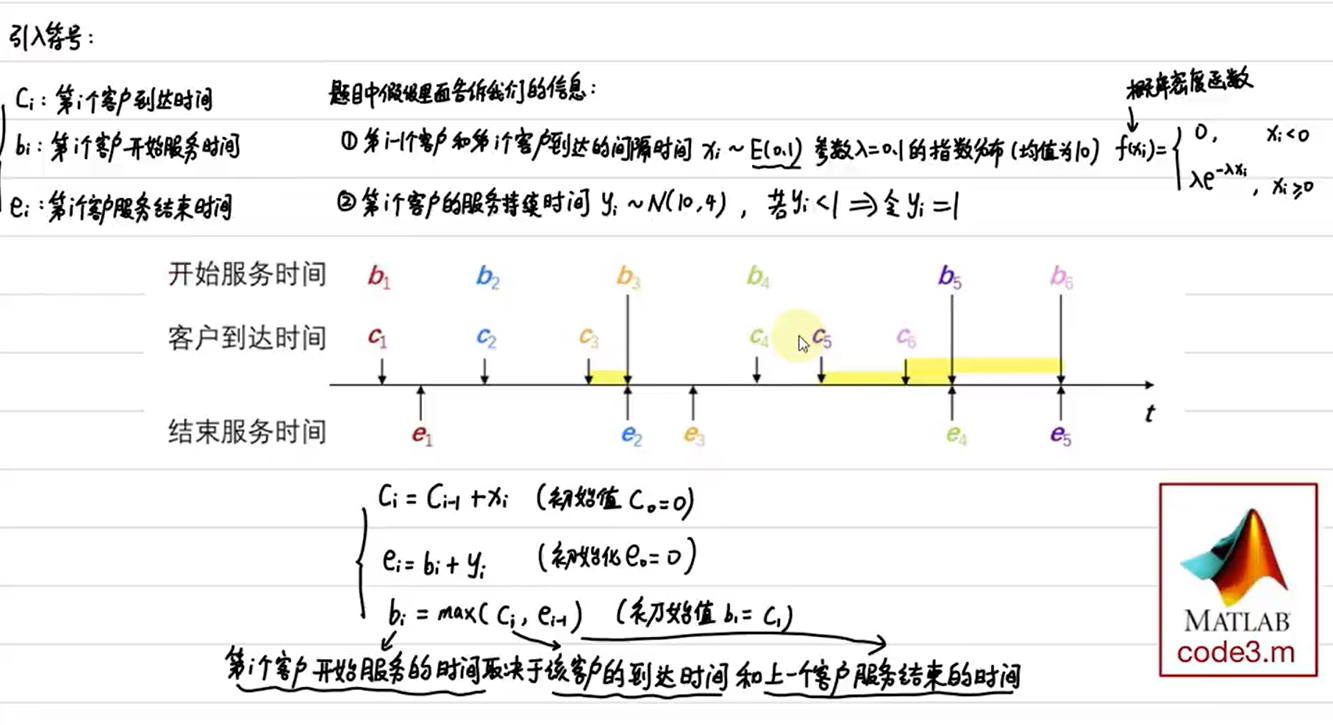 引入符号：
Ci：第i个客户到达时间
bi：第i个客户开始服务时间
ei：第i个客户服务结束时间
题目中假设里面告诉我们的信息：
① 第i-1个客户和第i个客户到达的间隔时间 xi ~ E(0.1) 参数λ=0.1的指数分布(均值为10)
概率密度函数
f(xi)= { 0, xi<0
λe^-λxi, xi≥0
② 第i个客户的服务持续时间 yi ~ N(10,4)，若yi<1 ⇒ 令yi=1
开始服务时间 b1 b2 b3 b4 b5 b6
客户到达时间 c1 c2 c3 c4 c5 c6
t
结束服务时间 e1 e2 e3 e4 e5
Ci = Ci-1 + xi (初始值 C0=0)
ei = bi + yi (初始化 e0=0)
bi = max(Ci, ei-1) (初始值 b1=C1)
第i个客户开始服务的时间取决于该客户的到达时间和上一个客户服务结束的时间
MATLAB
code3.m